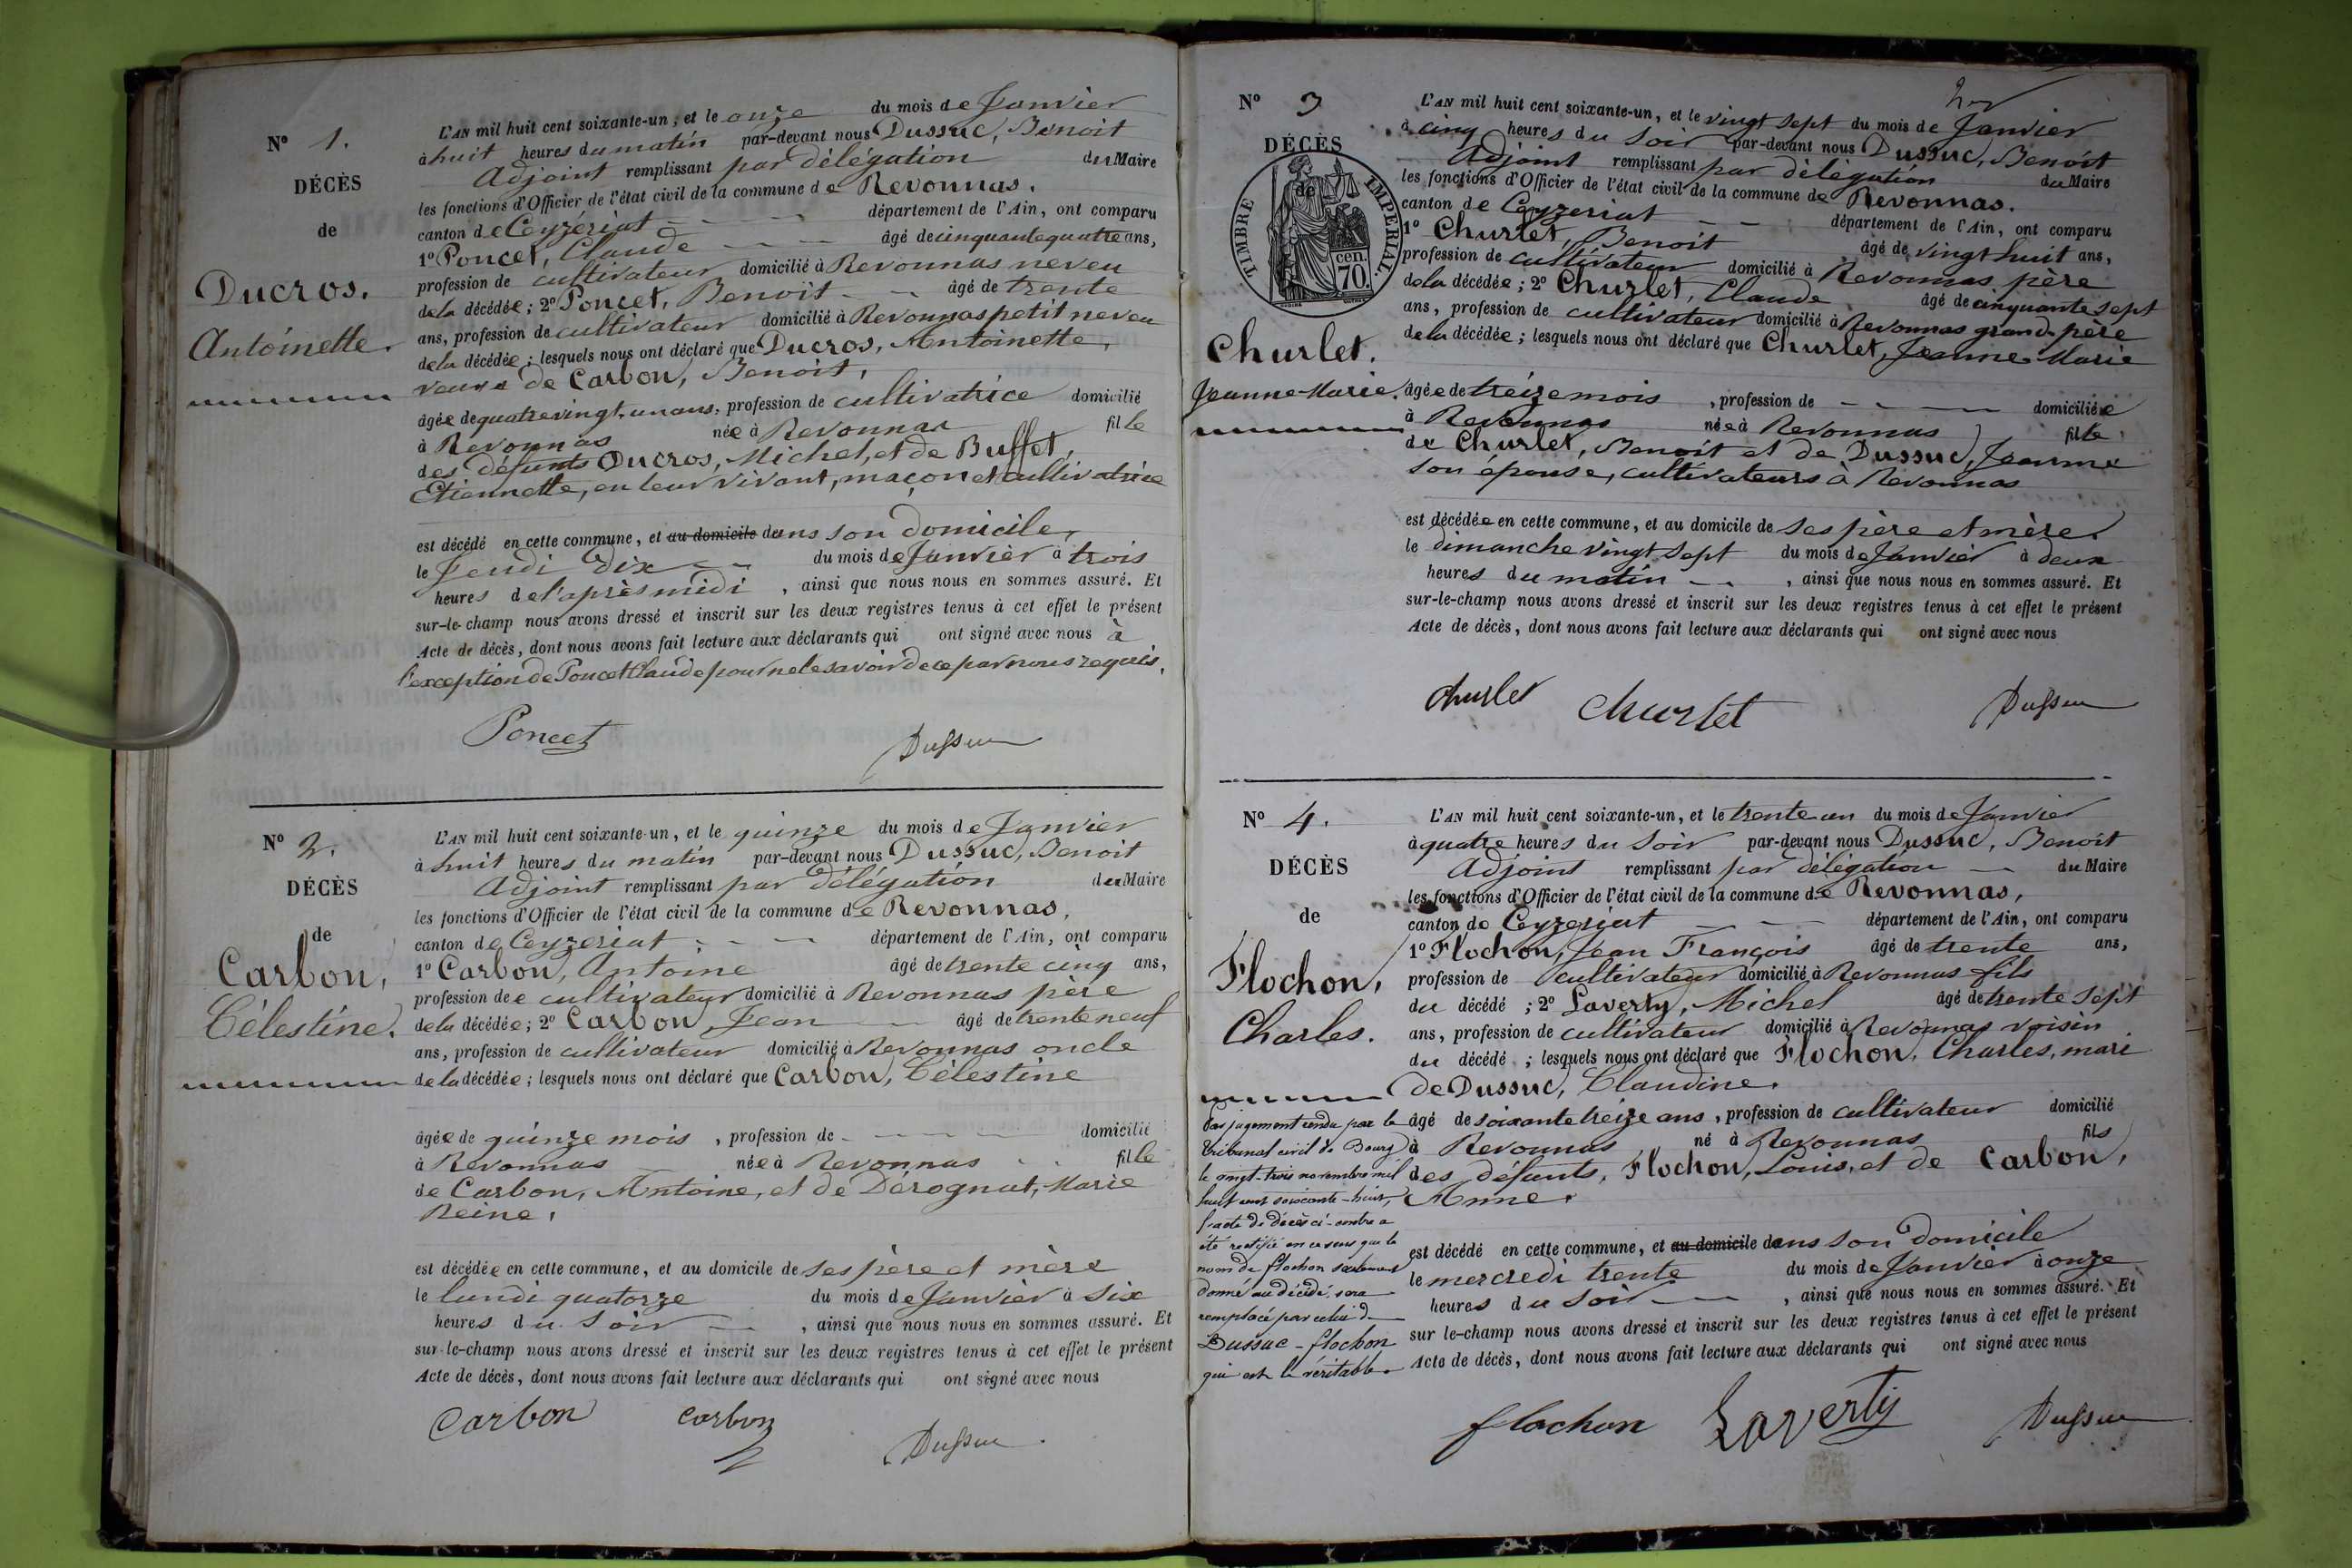 N° 1.
DÉCÈS
de
Ducros.
Antoinette.
L'AN mil huit cent soixante-un, et le onze du mois de Janvier
à huit heures du matin par-devant nous Dussuc, Benoit
Adjoint remplissant par délégation du Maire
les fonctions d'Officier de l'état civil de la commune de Revonnas.
canton de Ceyzériat département de l'Ain, ont comparu
1° Poncet, Claude âgé de cinquante quatre ans,
profession de cultivateur domicilié à Revonnas neveu
de la décédée; 2° Poncet, Benoit âgé de trente
ans, profession de cultivateur domicilié à Revonnas petit neveu
de la décédée; lesquels nous ont déclaré que Ducros, Antoinette,
veuve de Carbon, Benoit,
âgée de quatre vingt-un ans, profession de cultivatrice domicilié
à Revonnas née à Revonnas fille
des défunts Ducros, Michel, et de Buffet,
Etiennette, en leur vivant, maçon et cultivatrice
est décédé en cette commune, et au domicile dans son domicile,
le Jeudi dix du mois de Janvier à trois
heures de l'après midi, ainsi que nous nous en sommes assuré. Et
sur-le-champ nous avons dressé et inscrit sur les deux registres tenus à cet effet le présent
Acte de décès, dont nous avons fait lecture aux déclarants qui ont signé avec nous à
l'exception de Poncet Claude pour ne le savoir de ce par nous requis.
Poncet Dussuc
N° 2.
DÉCÈS
de
Carbon,
Célestine.
L'AN mil huit cent soixante-un, et le quinze du mois de Janvier
à huit heures du matin par-devant nous Dussuc, Benoit
Adjoint remplissant par délégation du Maire
les fonctions d'Officier de l'état civil de la commune de Revonnas,
canton de Ceyzeriat département de l'Ain, ont comparu
1° Carbon, Antoine âgé de trente cinq ans,
profession de cultivateur domicilié à Revonnas père
de la décédée; 2° Carbon, Jean âgé de trente neuf
ans, profession de cultivateur domicilié à Revonnas oncle
de la décédée; lesquels nous ont déclaré que Carbon, Célestine
âgée de quinze mois, profession de domicilié
à Revonnas née à Revonnas fille
de Carbon, Antoine, et de Dérognat, Marie
Reine,
est décédée en cette commune, et au domicile de ses père et mère
le lundi quatorze du mois de Janvier à six
heures du soir, ainsi que nous nous en sommes assuré. Et
sur-le-champ nous avons dressé et inscrit sur les deux registres tenus à cet effet le présent
Acte de décès, dont nous avons fait lecture aux déclarants qui ont signé avec nous
Carbon Carbon Dussuc
N° 3
DÉCÈS
de
TIMBRE IMPÉRIAL.
cen.
70.
Churlet.
Jeanne-Marie.
L'AN mil huit cent soixante-un, et le vingt sept du mois de Janvier
à cinq heures du soir par-devant nous Dussuc, Benoit
Adjoint remplissant par délégation du Maire
les fonctions d'Officier de l'état civil de la commune de Revonnas.
canton de Ceyzeriat département de l'Ain, ont comparu
1° Churlet, Benoit âgé de vingt huit ans,
profession de cultivateur domicilié à Revonnas père
de la décédée; 2° Churlet, Claude âgé de cinquante sept
ans, profession de cultivateur domicilié à Revonnas grand-père
de la décédée; lesquels nous ont déclaré que Churlet, Jeanne-Marie
âgée de treize mois, profession de domiciliée
à Revonnas née à Revonnas fille
de Churlet, Benoit et de Dussuc, Jeanne
son épouse, cultivateurs à Revonnas
est décédée en cette commune, et au domicile de ses père et mère.
le dimanche vingt sept du mois de Janvier à deux
heures du matin, ainsi que nous nous en sommes assuré. Et
sur-le-champ nous avons dressé et inscrit sur les deux registres tenus à cet effet le présent
Acte de décès, dont nous avons fait lecture aux déclarants qui ont signé avec nous
Churlet Churlet Dussuc
N° 4.
DÉCÈS
de
Flochon,
Charles.
L'AN mil huit cent soixante-un, et le trente un du mois de Janvier
à quatre heures du soir par-devant nous Dussuc, Benoit
Adjoint remplissant par délégation du Maire
les fonctions d'Officier de l'état civil de la commune de Revonnas,
canton de Ceyzeriat département de l'Ain, ont comparu
1° Flochon, Jean François âgé de trente ans,
profession de cultivateur domicilié à Revonnas fils
du décédé; 2° Laverty, Michel âgé de trente sept
ans, profession de cultivateur domicilié à Revonnas voisin
du décédé; lesquels nous ont déclaré que Flochon, Charles, mari
de Dussuc, Claudine.
âgé de soixante treize ans, profession de cultivateur domicilié
à Revonnas né à Revonnas fils
des défunts, Flochon, Louis, et de Carbon,
Anne.
est décédé en cette commune, et au domicile dans son domicile
le mercredi trente du mois de Janvier à onze
heures du soir, ainsi que nous nous en sommes assuré. Et
sur le-champ nous avons dressé et inscrit sur les deux registres tenus à cet effet le présent
Acte de décès, dont nous avons fait lecture aux déclarants qui ont signé avec nous
Par jugement rendu par le
tribunal civil de Bourg
le vingt-trois novembre mil
huit cent soixante-huit,
l'acte de décès ci-contre a
été rectifié en ce sens que le
nom de Flochon seulement
donné au décédé, sera
remplacé par celui de
Dussuc-Flochon
qui est le véritable.
flochon Laverty Dussuc